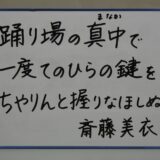 踊り場の真中で
まなか
一度てのひらの鍵を
ちゃりんと握りなほしぬ
斎藤美衣